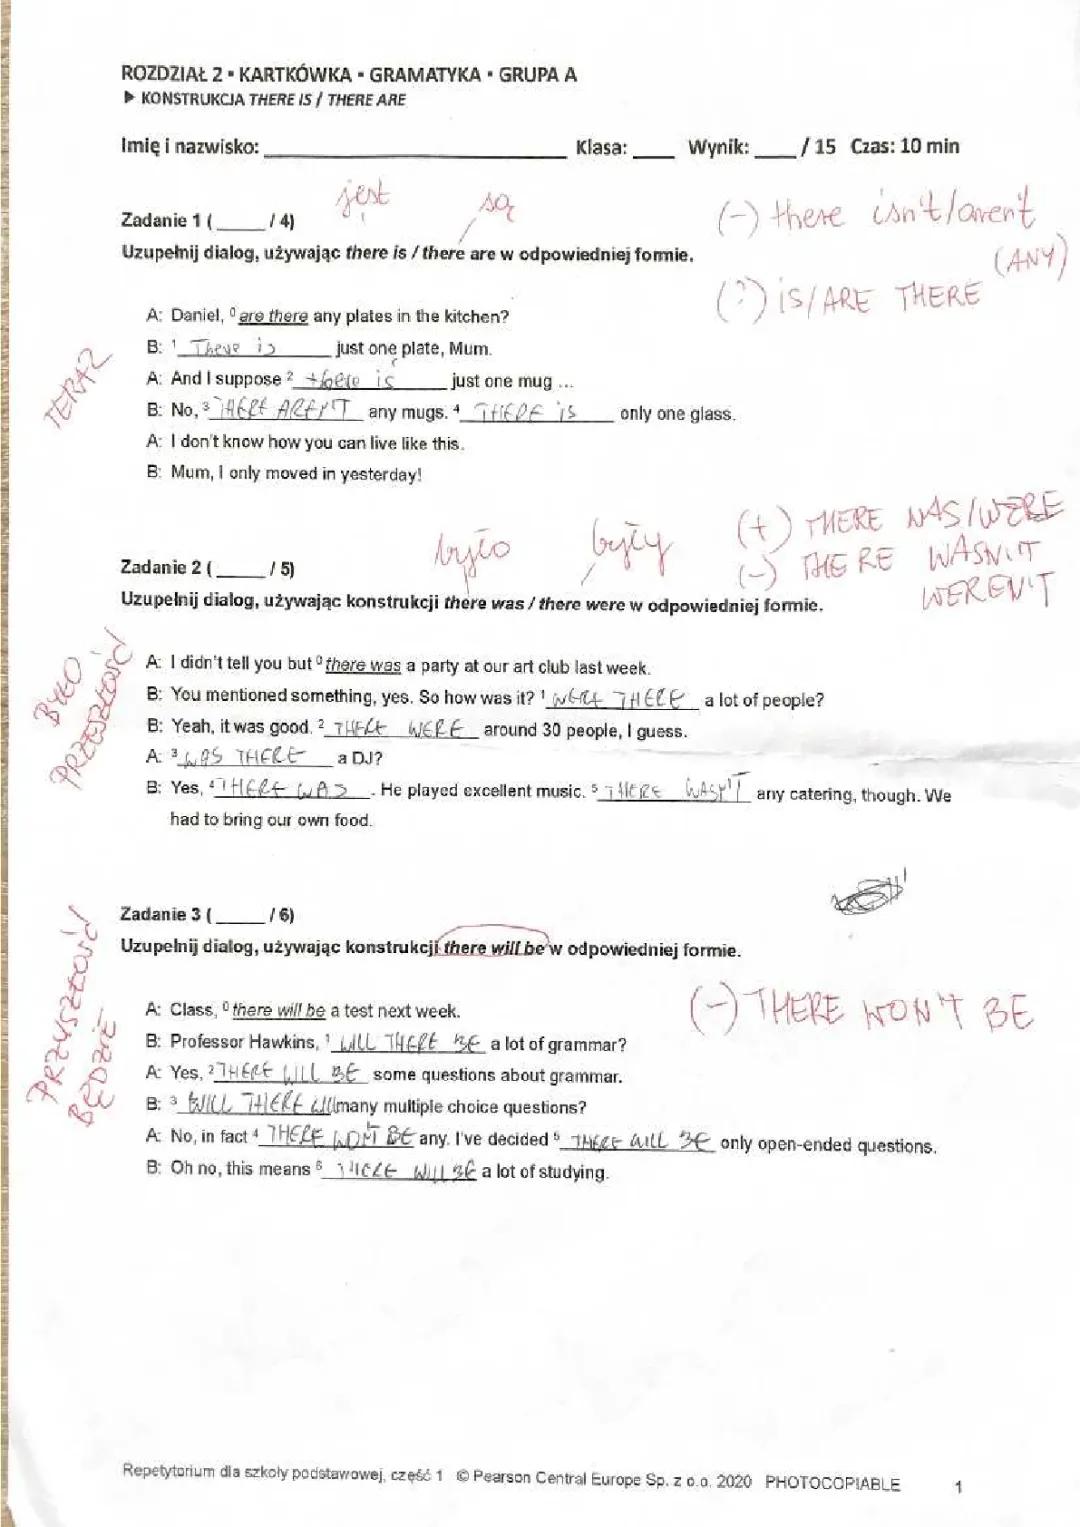 ROZDZIAŁ 2 ▪ KARTKÓWKA ▪ GRAMATYKA ▪ GRUPA A
▶ KONSTRUKCJA THERE IS / THERE ARE
Imię i nazwisko: ____ Klasa: ____ Wynik: ____ / 15 Czas: 10 min
jest są
(-) there isn't/aren't
Zadanie 1 ( ____ / 4)
(ANY)
Uzupełnij dialog, używając there is / there are w odpowiedniej formie.
(?) IS/ARE THERE
TERAZ
A: Daniel, 0 are there any plates in the kitchen?
B: 1 There is just one plate, Mum.
A: And I suppose 2 there is just one mug ...
B: No, 3 THERE AREN'T any mugs. 4 THERE IS only one glass.
A: I don't know how you can live like this.
B: Mum, I only moved in yesterday!
było były
(+) THERE WAS/WERE
(-) THERE WASN'T
WEREN'T
Zadanie 2 ( ____ / 5)
Uzupełnij dialog, używając konstrukcji there was / there were w odpowiedniej formie.
BYŁO
PRZESZŁOŚĆ
A: I didn't tell you but 0 there was a party at our art club last week.
B: You mentioned something, yes. So how was it? 1 WERE THERE a lot of people?
B: Yeah, it was good. 2 THERE WERE around 30 people, I guess.
A: 3 WAS THERE a DJ?
B: Yes, 4 THERE WAS. He played excellent music. 5 THERE WASN'T any catering, though. We
had to bring our own food.
Zadanie 3 ( ____ / 6)
Uzupełnij dialog, używając konstrukcji there will be w odpowiedniej formie.
PRZYSZŁOŚĆ
BĘDZIE
(-) THERE WON'T BE
A: Class, 0 there will be a test next week.
B: Professor Hawkins, 1 WILL THERE BE a lot of grammar?
A: Yes, 2 THERE WILL BE some questions about grammar.
B: 3 WILL THERE many multiple choice questions?
A: No, in fact 4 THERE WON'T BE any. I've decided 5 THERE WILL BE only open-ended questions.
B: Oh no, this means 6 THERE WILL BE a lot of studying.
Repetytorium dla szkoły podstawowej, część 1 © Pearson Central Europe Sp. z o.o. 2020 PHOTOCOPIABLE 1